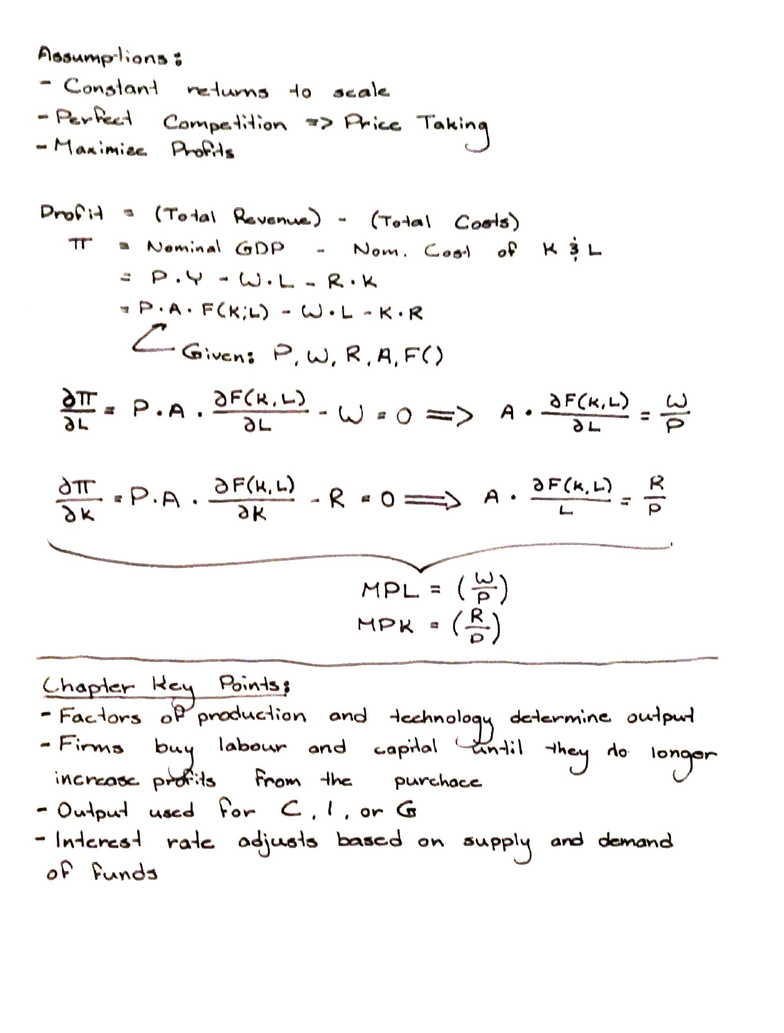 Assumptions:
- Constant returns to scale
- Perfect Competition => Price Taking
- Maximize Profits
Profit = (Total Revenue) - (Total Costs)
π = Nominal GDP - Nom. Cost of K & L
= P·Y - W·L - R·K
= P·A·F(K;L) - W·L - K·R
Given: P, W, R, A, F()
∂π/∂L = P·A·∂F(K,L)/∂L - W = 0 => A·∂F(K,L)/∂L = W/P
∂π/∂K = P·A·∂F(K,L)/∂K - R = 0 => A·∂F(K,L)/L = R/P
MPL = (W/P)
MPK = (R/P)
Chapter Key Points:
- Factors of production and technology determine output
- Firms buy labour and capital until they do longer
increase profits from the purchace
- Output used for C, I, or G
- Interest rate adjusts based on supply and demand
of funds